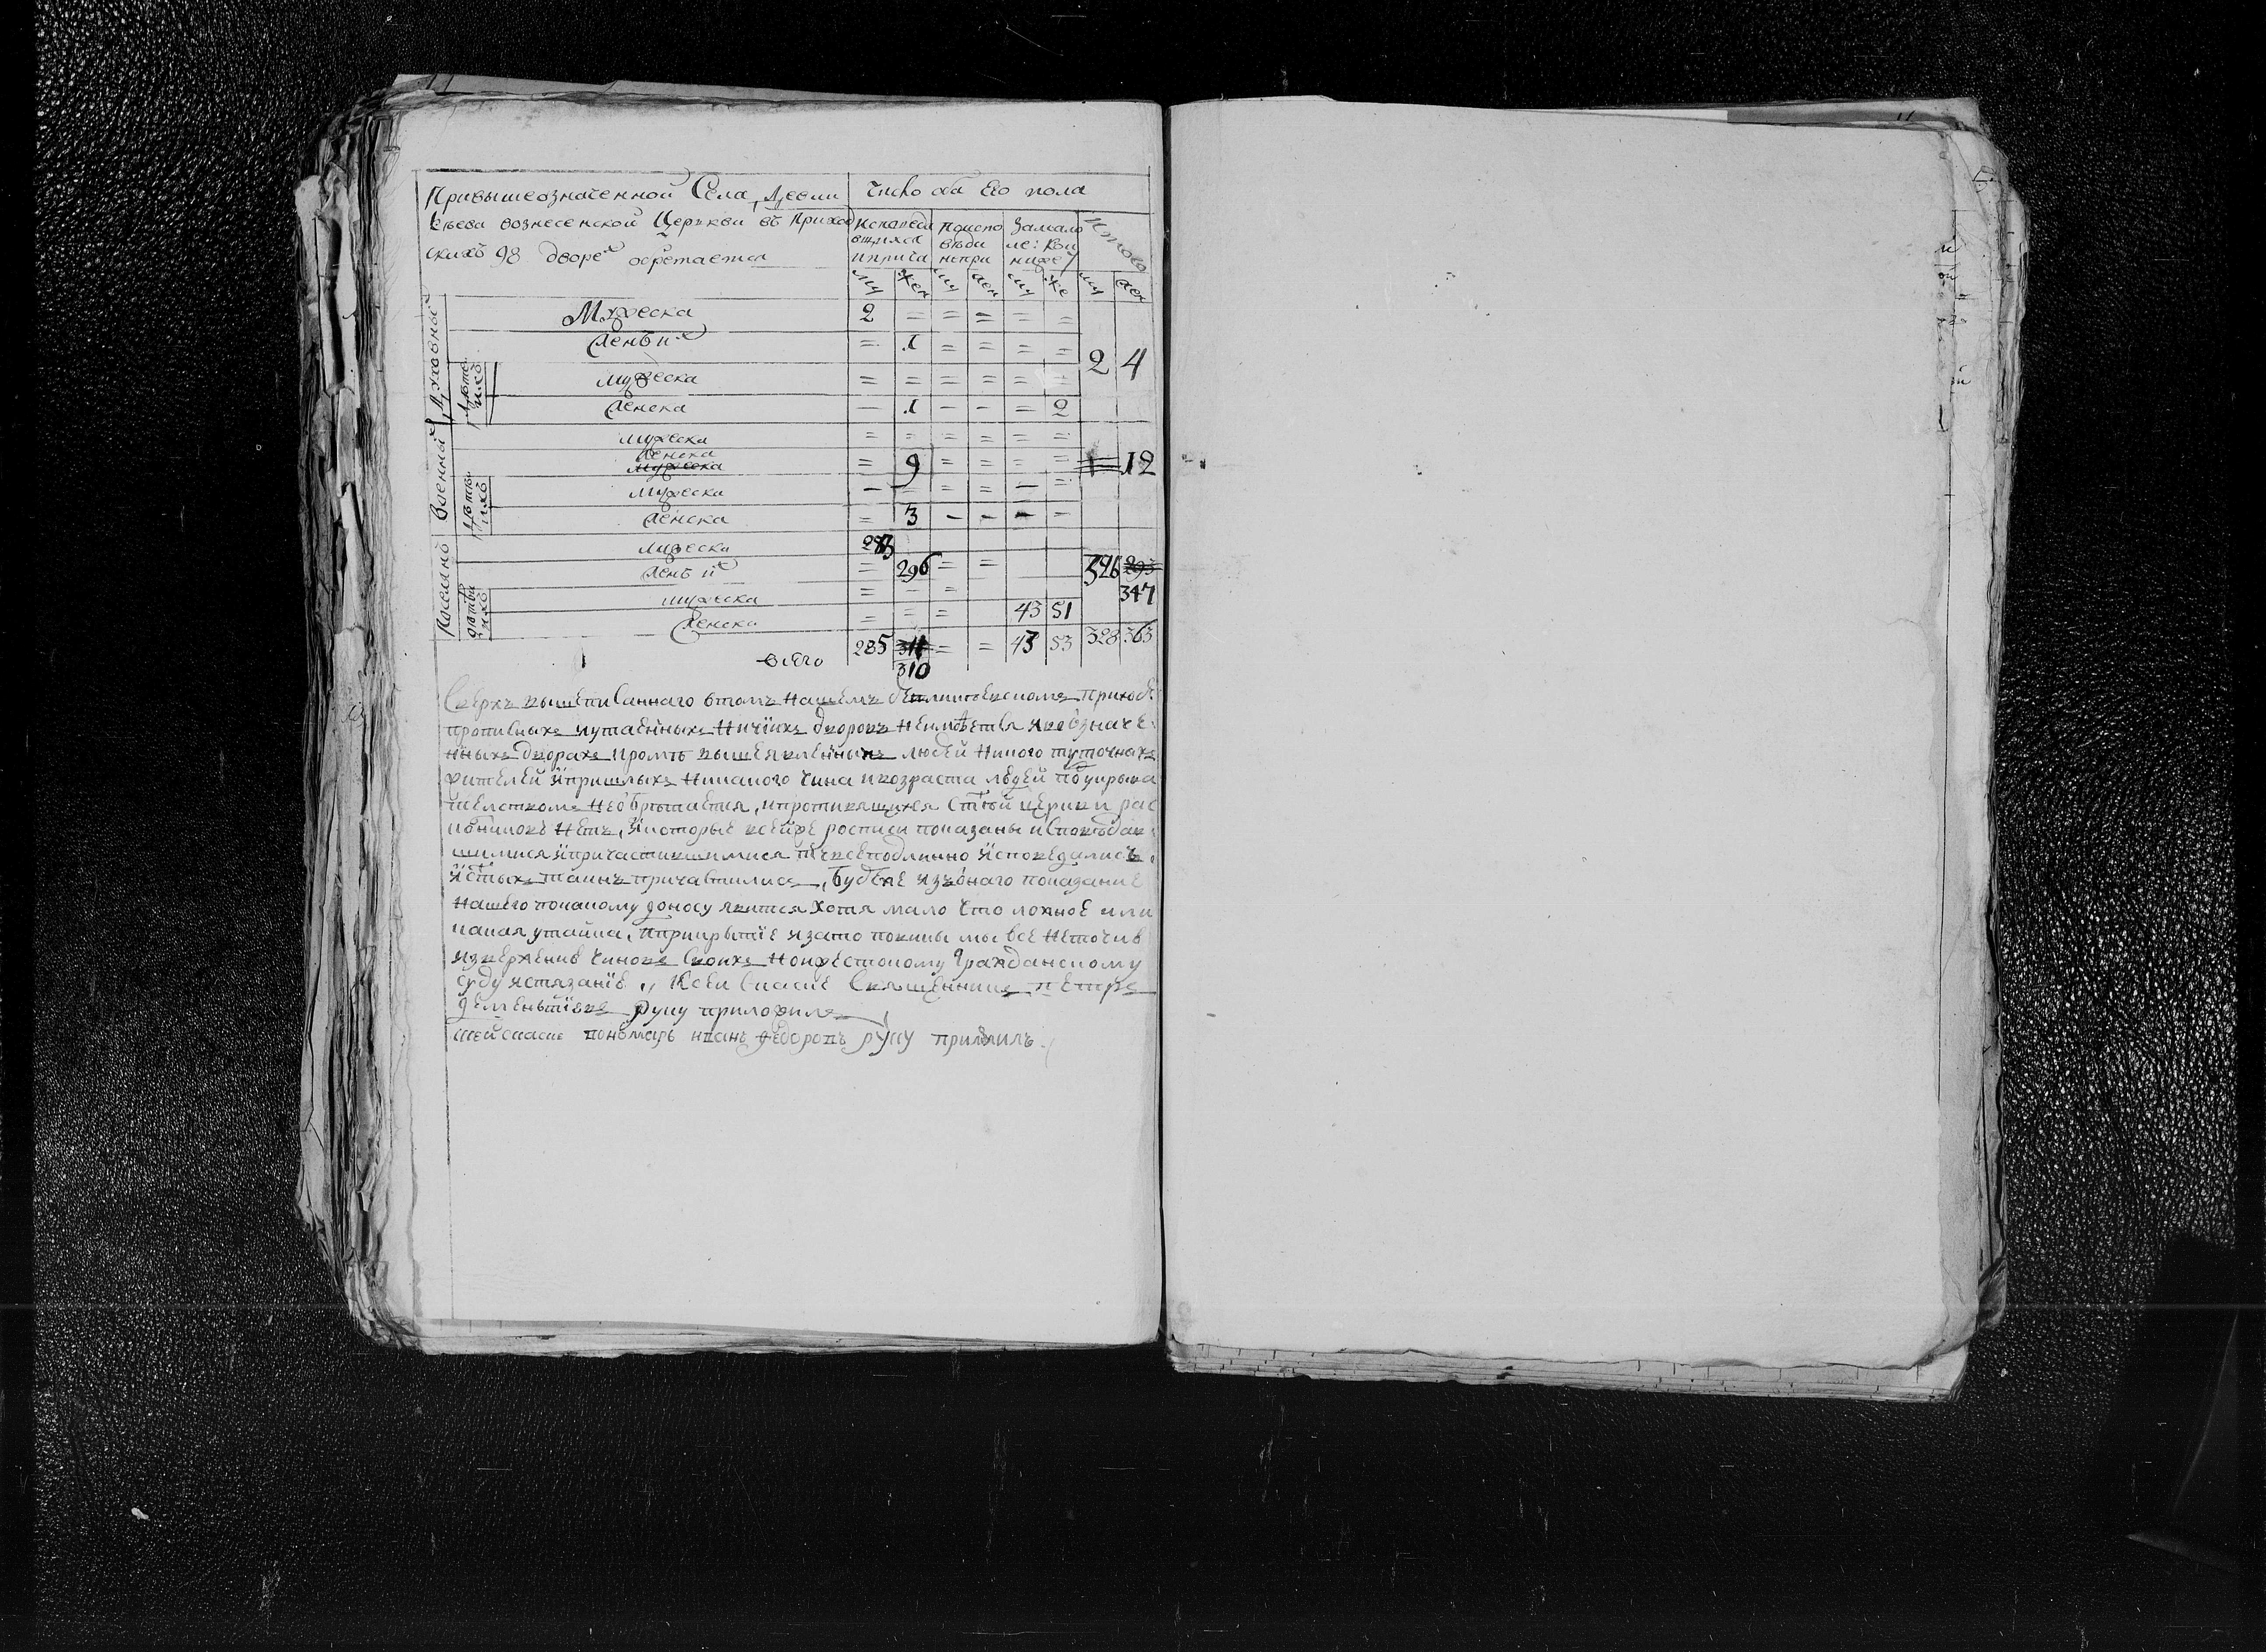 Привышеозначенной Села, Девли
кѣева вознесенской Церкви въ Приход
скихъ 98 дворехъ обретается
Число оба Его пола
Исповеда
вшихся
и прича
Поиспо
вѣди
непри
Замало
ле:
Итого
му жен му жен му же му жен
Духовныхъ
Мужеска 2 = = = = =
Женскихъ = 1 = = = = 2 4
Дѣтей
ихъ
мужеска = = = = = =
женска — 1 – – = 2
Военныхъ
мужеска = = = = = =
женска
мужеска = 9 = = = = 12
Дѣтей
ихъ
мужеска – = = = – =
женска = 3 – – – –
Поселянъ
мужеска 283
женскихъ = 296 = = 326 293
347
дѣтей
ихъ
мужеска = – =
женска = = = 43 51
всего 285 311 = = 43 53 328 363
310
Сверхъ вышеписаннаго втомъ нашемъ приходе
прописныхъ иутаенныхъ ничіихъ дворовъ неимѣется ивоозначе
нныхъ дворахъ кромѣ вышеявленныхъ людей никого туточныхъ
жителей ипришлыхъ никакого чина ивозраста людей подукрыва
телствомъ необрѣтается, ипротивящихся стой церкви рас
колниковъ нетъ, икоторые всейже росписи показаны исповѣдав
шимися ипричастившимися тѣ всеподлинно исповедались
истыхъ таинъ причастились, Будеже изъонаго показание
нашего покакому доносу явится хотя мало что ложное или
какая утайка, иприкрытие изато повинны мы все неточию
извержению чиновъ своихъ ноижестокому Гражданскому
суду истязание ,, Ксеи Сказке Священникъ петръ
дементьевъ руку приложилъ
ксейсказке пономарь иванъ федоровъ руку приложилъ